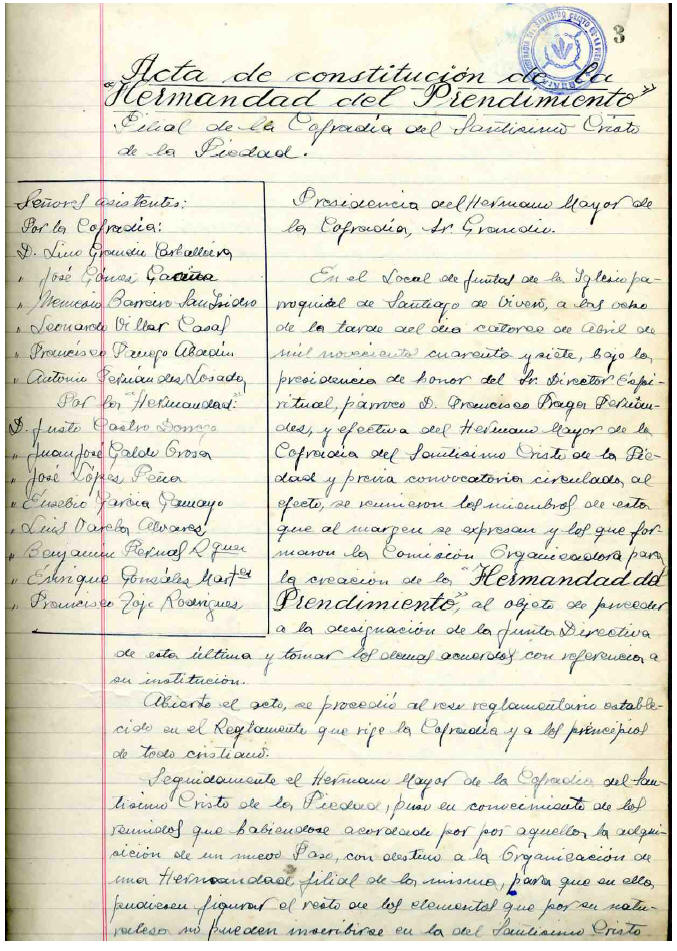 3
Acta de constitución de la
"Hermandad del Prendimiento"
Filial de la Cofradía del Santísimo Cristo
de la Piedad.
Señores asistentes:
Por la Cofradía:
D. Lino Grandío Carballeira
" José Gómez
" Nemesio Barreiro San Isidro
" Leonardo Villar Casal
" Francisco Abadín
" Antonio Fernández Losada
Por la "Hermandad":
D. Justo Castro
" Juan José Galdo Orosa
" José López Peña
" Eusebio García Gamayo
" Luis Varela Alvarez
" Benjamín Bernal
" Enrique González
" Francisco Rodríguez
Presidencia del Hermano Mayor de
la Cofradía, Sr. Grandío.
En el Local de Juntas de la Iglesia pa-
rroquial de Santiago de Vivero, a las ocho
de la tarde del día catorce de Abril de
mil novecientos cuarenta y siete, bajo la
presidencia de honor del Sr. Director Espi-
ritual, párroco D. Francisco Fraga Fernán-
dez, y efectiva del Hermano Mayor de la
Cofradía del Santísimo Cristo de la Pie-
dad y previa convocatoria circulada al
efecto, se reunieron los miembros de esta
que al margen se expresan y los que for-
maron la Comisión Organizadora para
la creación de la "Hermandad del
Prendimiento", al objeto de proceder
a la designación de la Junta Directiva
de esta última y tomar los demas acuerdos con referencia a
su institución.
Abierto el acto, se procedió al rezo reglamentario estable-
cido en el Reglamento que rige la Cofradía y a los principios
de todo cristiano.
Seguidamente el Hermano Mayor de la Cofradía del San-
tísimo Cristo de la Piedad, puso en conocimiento de los
reunidos que habiendose acordado por por aquella la adqui-
sición de un nuevo Paso, con destino a la Organización de
una Hermandad filial de la misma, para que en ella
pudiesen figurar el resto de los elementos que por su natu-
raleza no pueden inscribirse en la del Santísimo Cristo